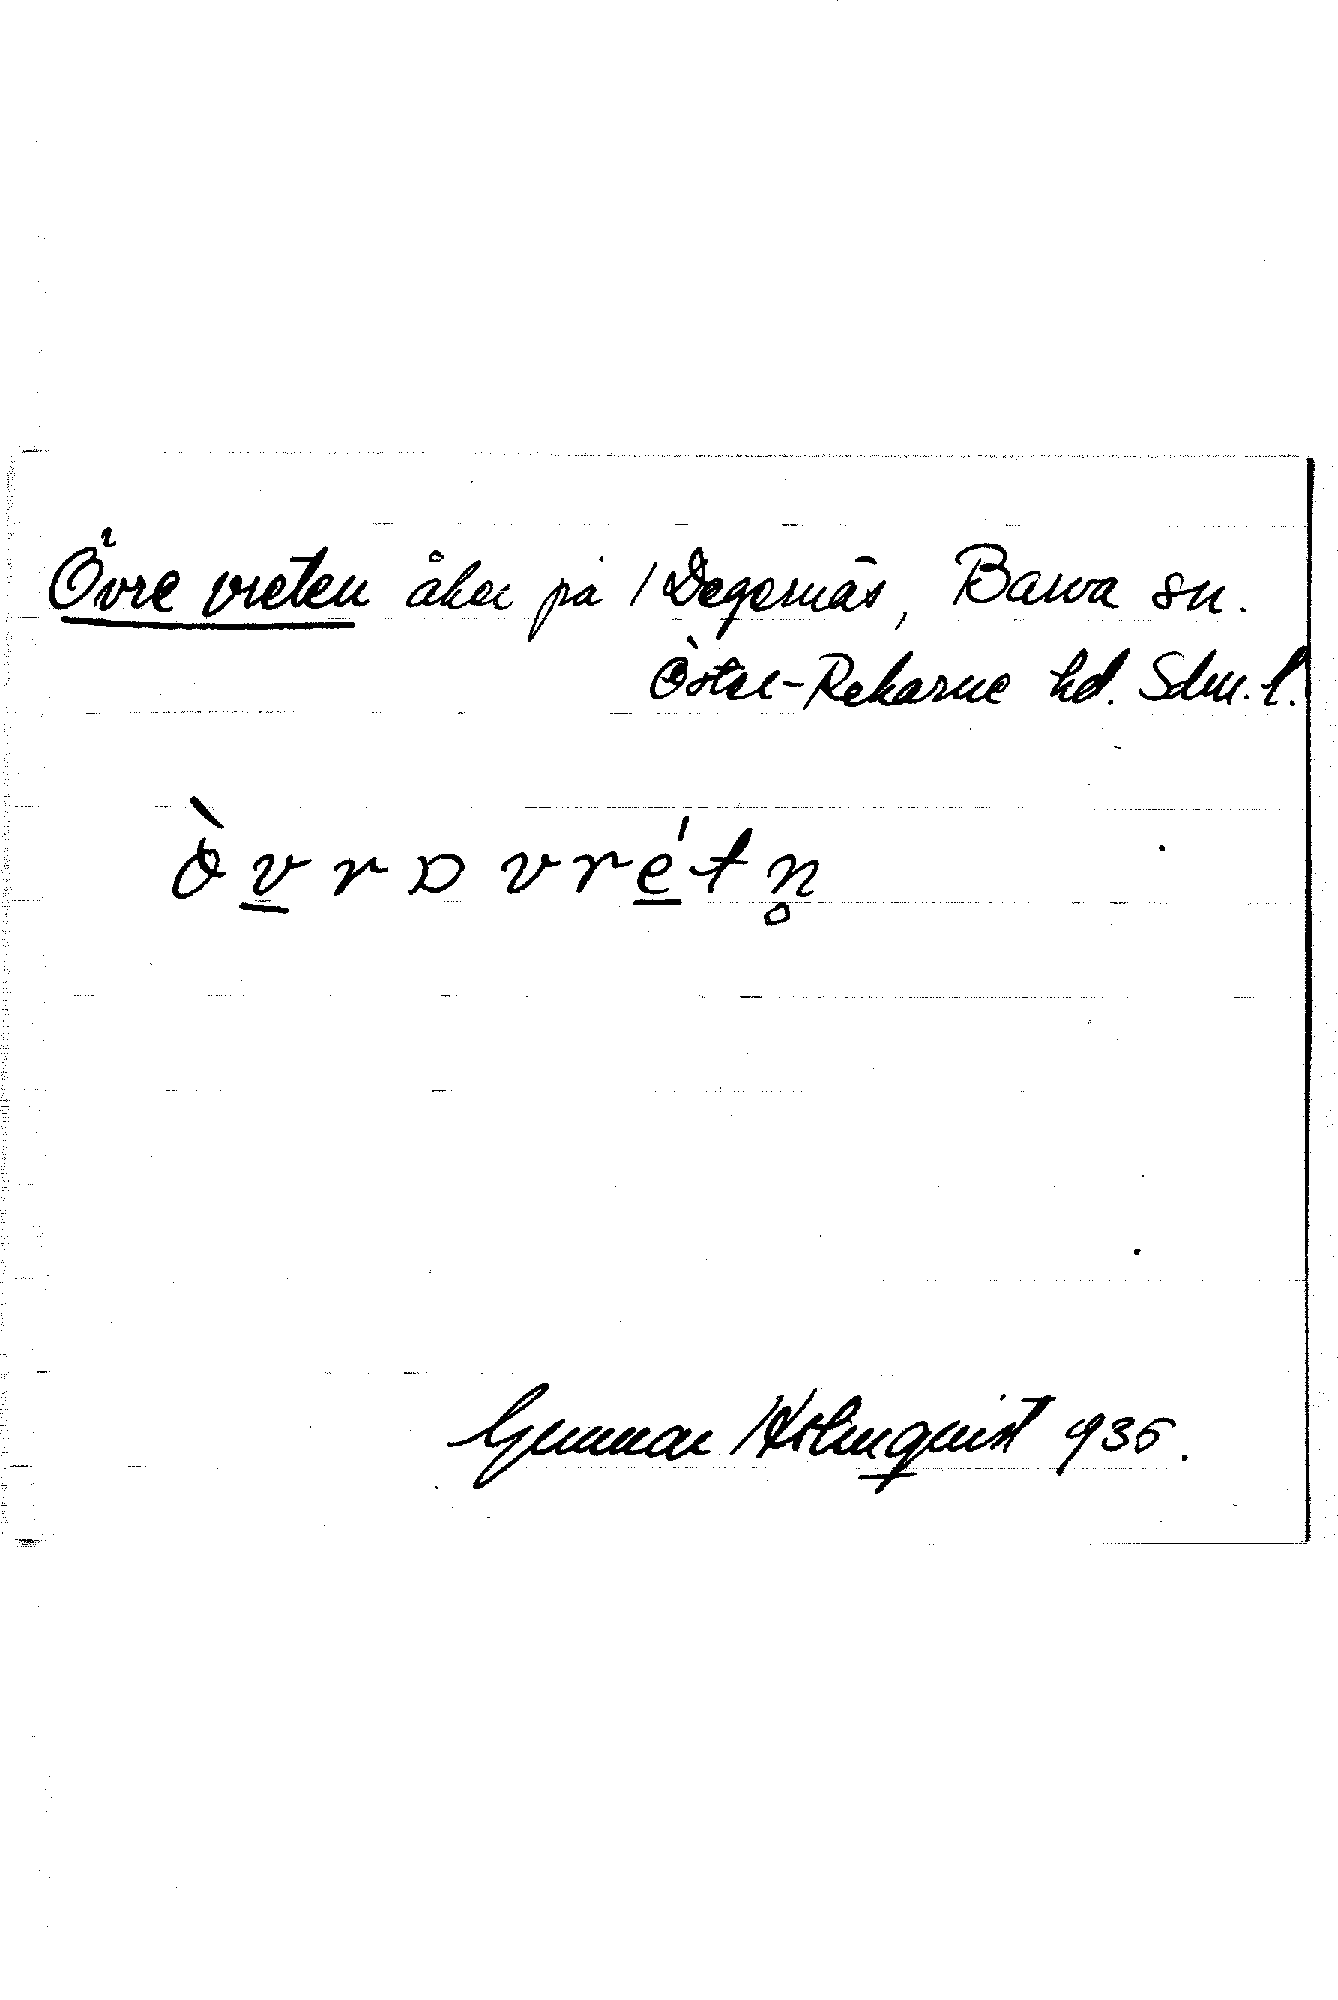 Övre vreten åker på Degernäs, Barva sn.
Öster-Rekarne hd. Sdm. l.
ø̀v̲rɷ vré̲tn̥
Gunnar Holmquist 935.